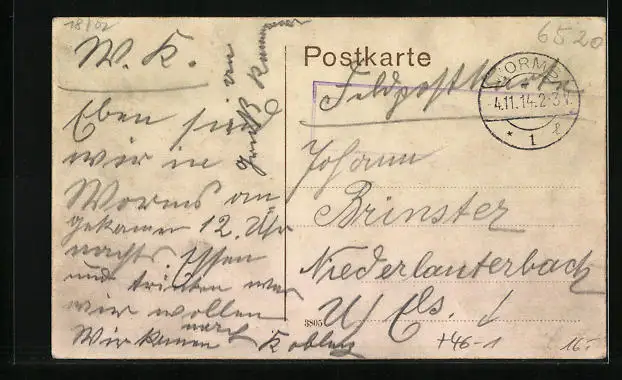 18/02
W. K.
Eben sind
wir in
Worms an-
gekamen 12. Uhr
nachts Essen
und trinken was
wir wollen
Wir kamen nach Koblenz
Gruß von
Postkarte
6520
Feldpostkarte
WORMS
4.11.14.2-3 V.
* 1 *
Johann
Brinster
Niederlauterbach
U/ Els.
3805
+46-1
16.-